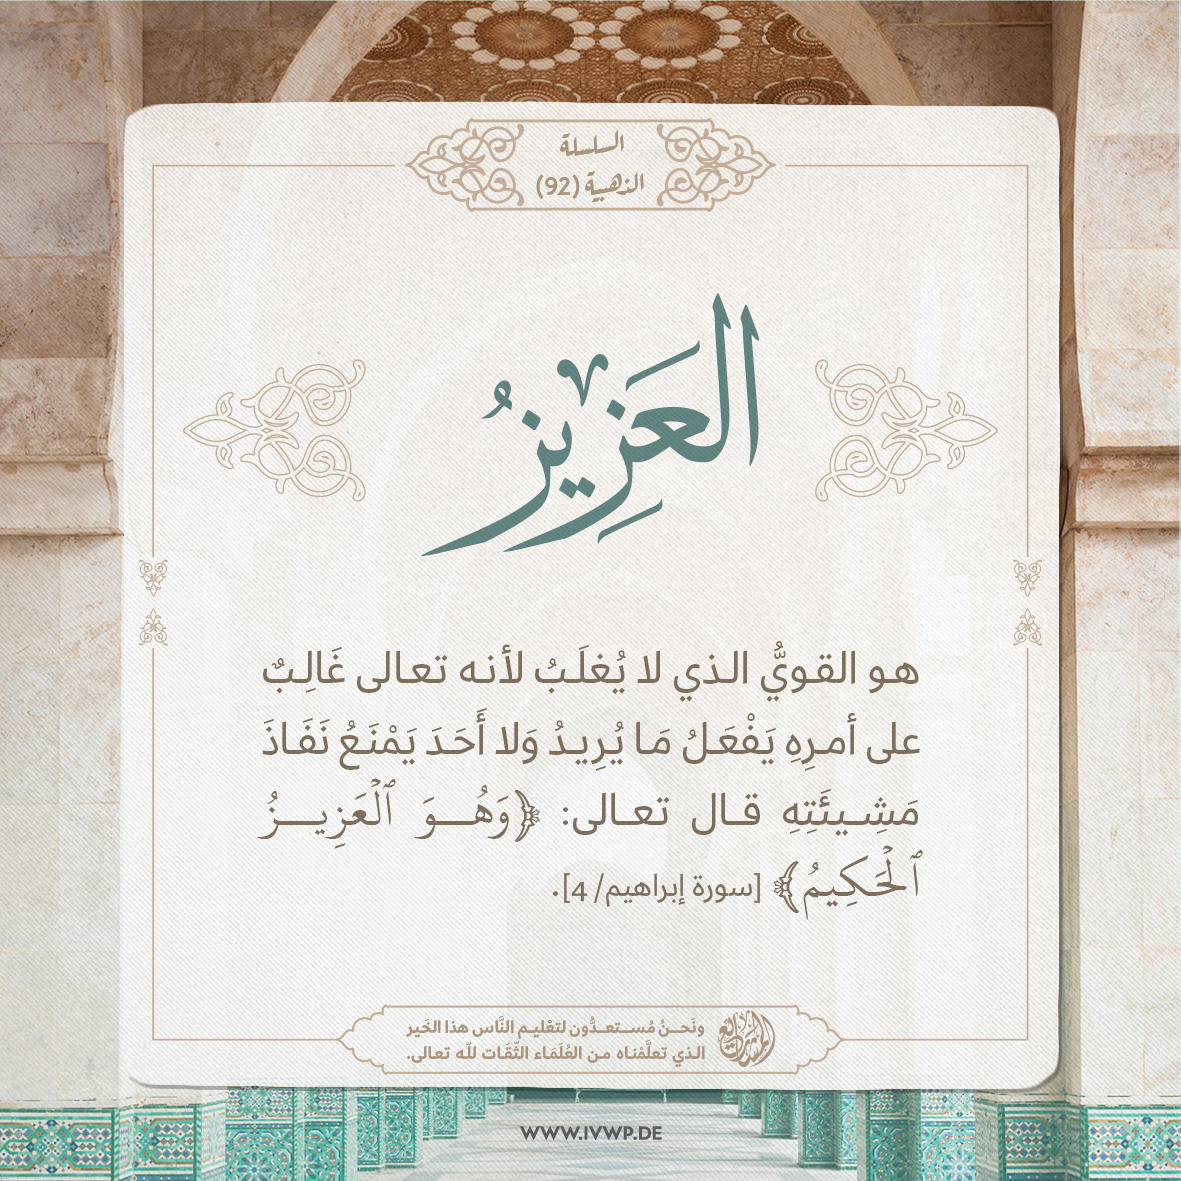 السلسلة
الذهبية (92)
العَزِيزُ
هو القويُّ الذي لا يُغلَبُ لأنه تعالى غَالِبٌ
على أمرِهِ يَفْعَلُ مَا يُرِيدُ وَلا أَحَدَ يَمْنَعُ نَفَاذَ
مَشِيئَتِهِ قال تعالى: ﴿وَهُوَ ٱلْعَزِيزُ
ٱلْحَكِيمُ﴾ [سورة إبراهيم/ 4].
ونَحنُ مُستعدُّون لتعْليم النَّاس هذا الخَير
الذي تعلَّمْناه من العُلَمَاء الثّقَات للّه تعالى.
WWW.IVWP.DE